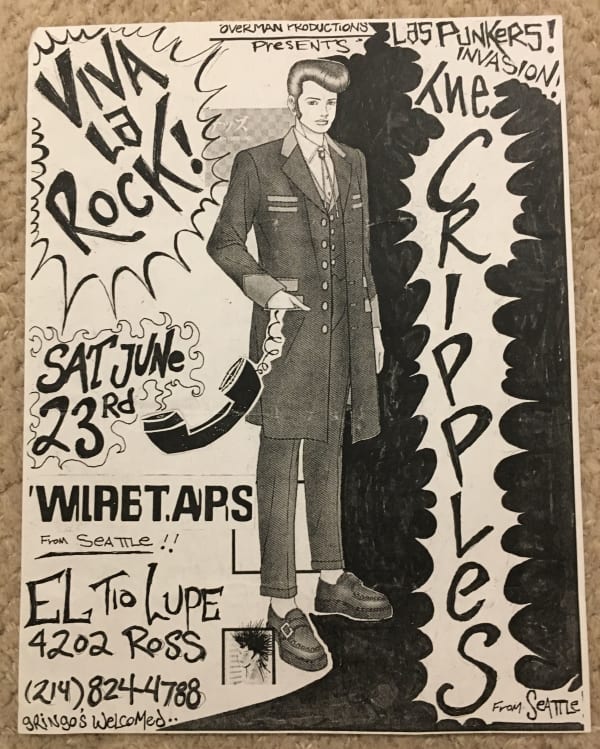 OVERMAN PRODUCTIONS
PRESENTS
VIVA
La
ROCK!
Las PUNKERS!
INVASION!
THE
CRIPPLES
From SEATTLE
SAT JUNE
23RD
'WIRET.APS
From SEATTLE !!
EL Tio LUPE
4202 ROSS
(214) 824-4788
gRiNgo's WelcoMed..
ッズ